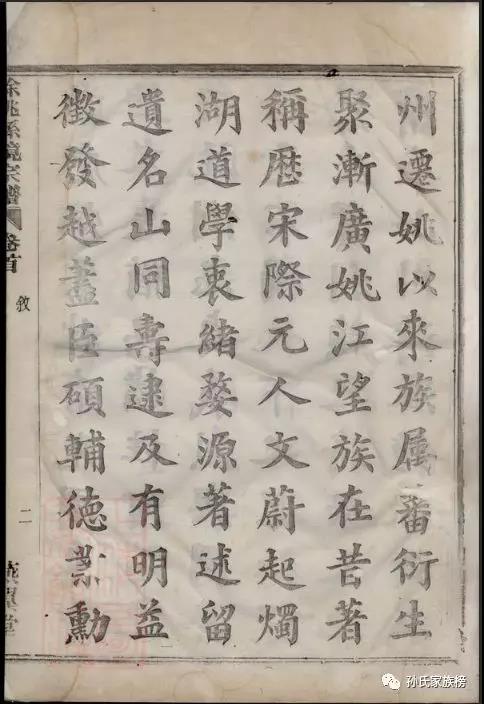 州遷姚以來族属蕃衍生
聚漸廣姚江望族在昔著
稱歷宋際元人文蔚起燭
湖道學衷緒婺源著述留
遺名山同壽逮及有明益
徵發越藎臣碩輔德業勳
餘姚孫境宗譜 卷首 敘 二 燕翼堂
孙氏家族榜